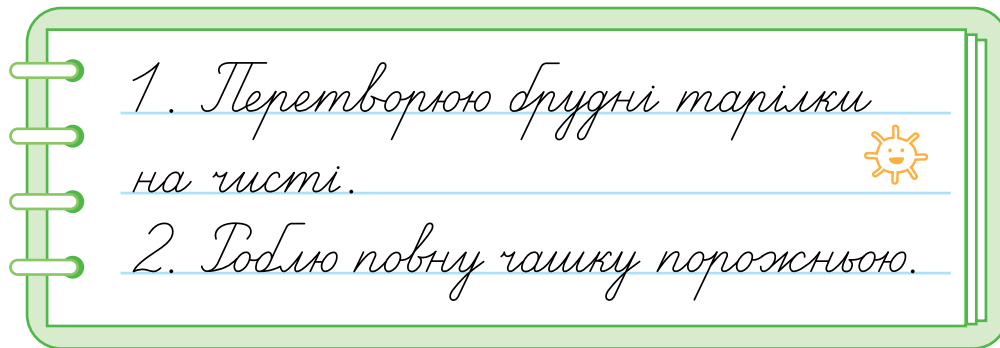 1. Перетворюю брудні тарілки
на чисті.
2. Роблю повну чашку порожньою.